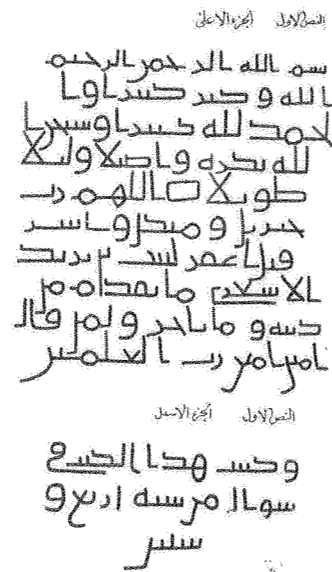 النص الاول الجزء الاعلى
بسم الله الرحمن الرحيم
الله وكبر كبيرا وا
لحمد لله كثيرا وسبحن ا
لله بكرة واصيلا وليلا
طويلا اللهم رب
جبريل وميكل واسر
فيل اغفر لثبت بن يزيد
الاشعري ما تقدم من
ذنبه وما تاخر ولمن قال
امين امين رب العلمين
النص الاول الجزء الاسفل
وكتب هذا الكتب في
شوال من سنة اربع و
ستين